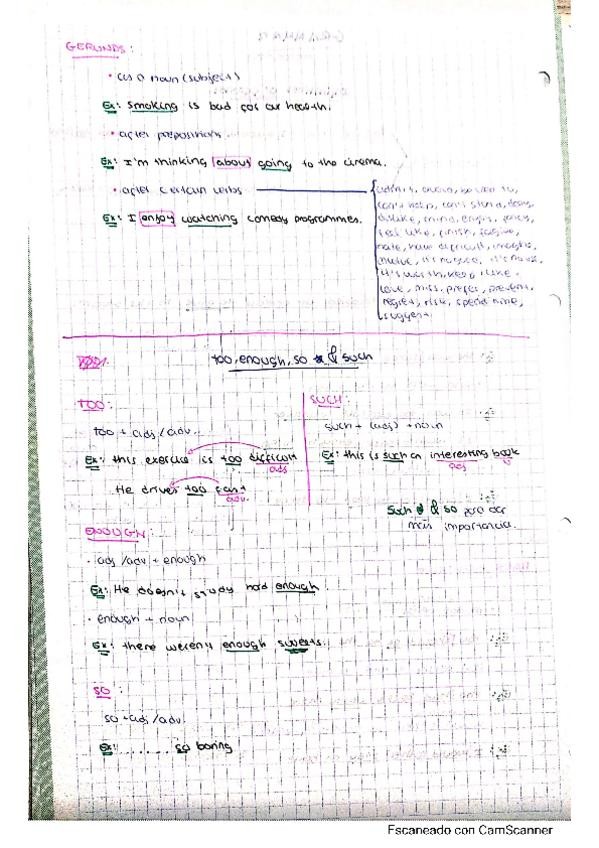 GERUNDS:
• as a noun (subject)
Ex: Smoking is bad for our health.
• after prepositions
Ex: I'm thinking about going to the cinema.
• after certain verbs
Ex: I enjoy watching comedy programmes.
can't help, can't stand, deny,
dislike, mind, enjoy, fancy,
feel like, finish, forgive,
hate, have difficult, imagine,
love, miss, prefer, prevent,
regret, risk, spend time,
suggest
too, enough, so & such
TOO:
too + adj / adv.
Ex: this exercise is too difficult
adj
He drives too fast
adv.
SUCH:
such + (adj) + noun
Ex: this is such an interesting book
adj
Such & so para dar
más importancia.
ENOUGH:
• adj / adv + enough
Ex: He doesn't study hard enough.
• enough + noun
Ex: there weren't enough sweets.
SO:
so + adj / adv
Ex: ....... so boring
Escaneado con CamScanner